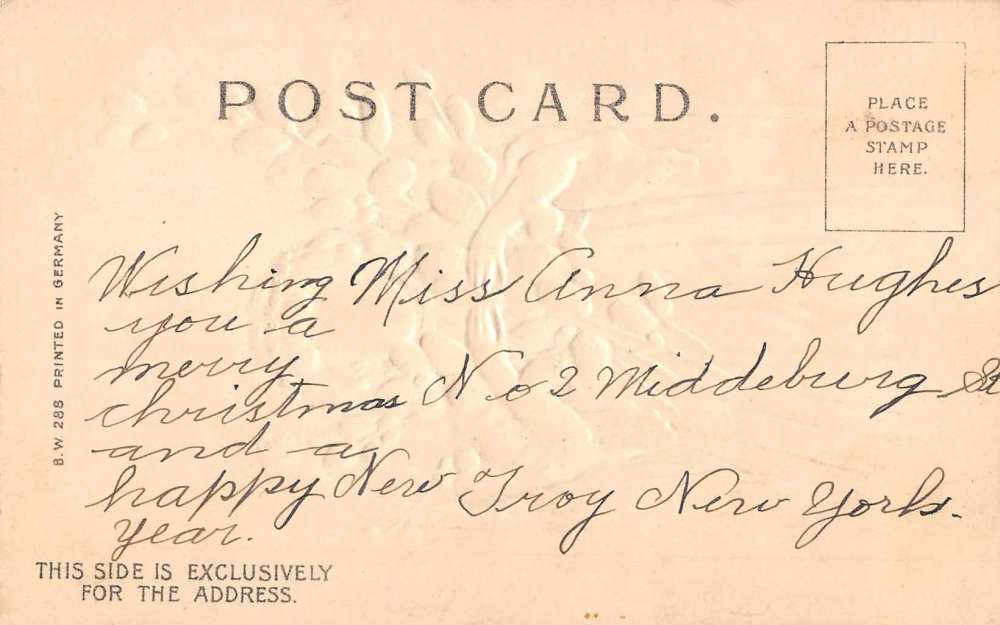 POST CARD.
PLACE
A POSTAGE
STAMP
HERE.
B.W. 288 PRINTED IN GERMANY
Wishing
you a
merry
christmas
and a
happy New
year.
Miss Anna Hughes
No 2 Middeburg St
Troy New York.
THIS SIDE IS EXCLUSIVELY
FOR THE ADDRESS.